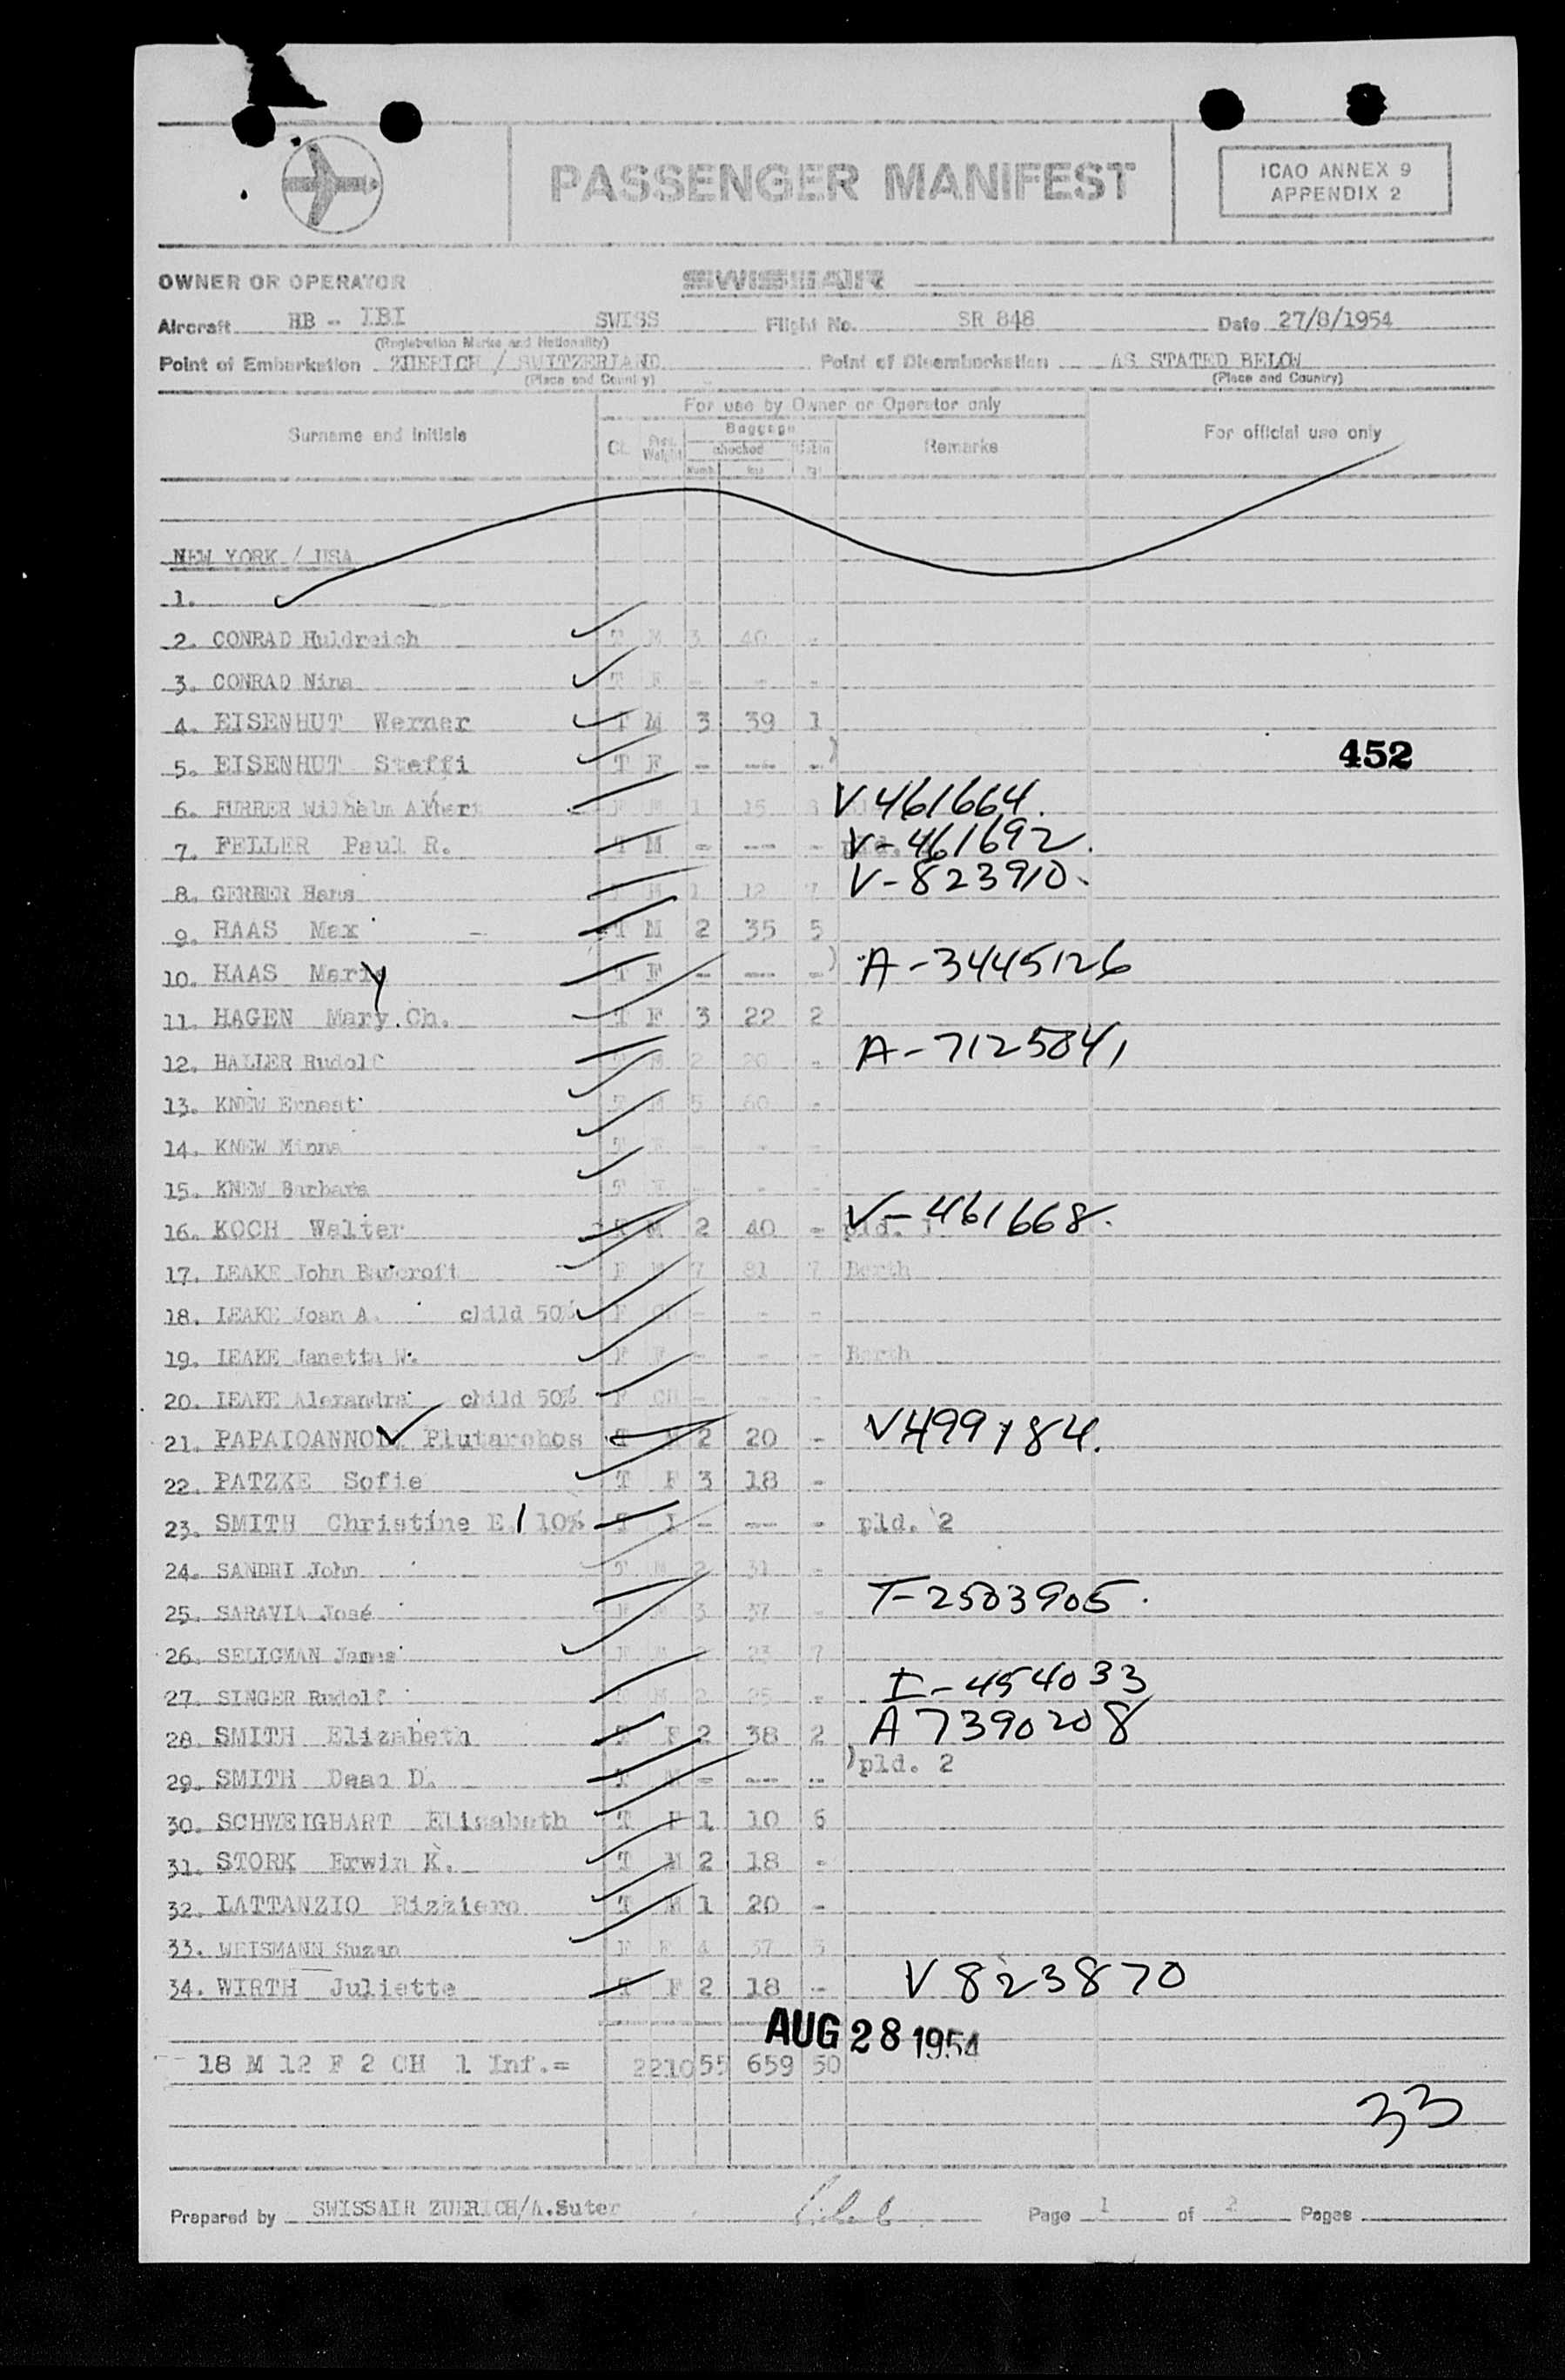 PASSENGER MANIFEST
ICAO ANNEX 9
APPENDIX 2
OWNER OR OPERATOR SWISSAIR
Aircraft HB - IBI SWISS Flight No. SR 848 Date 27/8/1954
(Registration Marks and Nationality)
Point of Embarkation ZUERICH / SWITZERLAND Point of Disembarkation AS STATED BELOW
(Place and Country) (Place and Country)
For use by Owner or Operator only
Surname and initials Baggage Remarks For official use only
checked Cabin
NEW YORK / USA
1.
2. CONRAD Huldreich T M 3 40 -
3. CONRAD Nina T F - - -
4. EISENHUT Werner T M 3 39 1
5. EISENHUT Steffi T F - --- - )
452
6. FURRER Wilhelm Albert 1 15 V 461664.
7. FELLER Paul R. T M - --- - V-461692.
8. GERBER Hans M 1 12 7 V-823910.
9. HAAS Max T M 2 35 5
10. HAAS Mary T F - --- - ) A-3445126
11. HAGEN Mary Ch. T F 3 22 2
12. HALLER Rudolf M 2 20 - A-7125841
13. KNEW Ernest T M 5 60 -
14. KNEW Minna T F - - -
15. KNEW Barbara T F - - -
16. KOCH Walter T M 2 40 - pld. V-461668.
17. LEAKE John Bancroft F M 7 81 7 Berth
18. LEAKE Joan A. child 50% F CH - - -
19. LEAKE Janetta W. F F - - - Berth
20. LEAKE Alexandra child 50% F CH - - -
21. PAPAIOANNOU Plutarchos T M 2 20 - V499184.
22. PATZKE Sofie T F 3 18 -
23. SMITH Christine E. 10% T I - --- - pld. 2
24. SANDRI John T M 2 31 -
25. SARAVIA José F M 3 37 - T-2503905.
26. SELIGMAN James F M 2 23 7
27. SINGER Rudolf M 2 25 - I-454033
28. SMITH Elizabeth T F 2 38 2 A 7390208
29. SMITH Dean D. T M - --- - )pld. 2
30. SCHWEIGHART Elisabeth T F 1 10 6
31. STORK Erwin K. T M 2 18 -
32. LATTANZIO Rizziero T M 1 20 -
33. WEISMANN Suzan F F 4 37 3
34. WIRTH Juliette T F 2 18 - V 823870
AUG 28 1954
18 M 12 F 2 CH 1 Inf.= 2210 55 659 50
33
Prepared by SWISSAIR ZUERICH/A.Suter Page 1 of 2 Pages